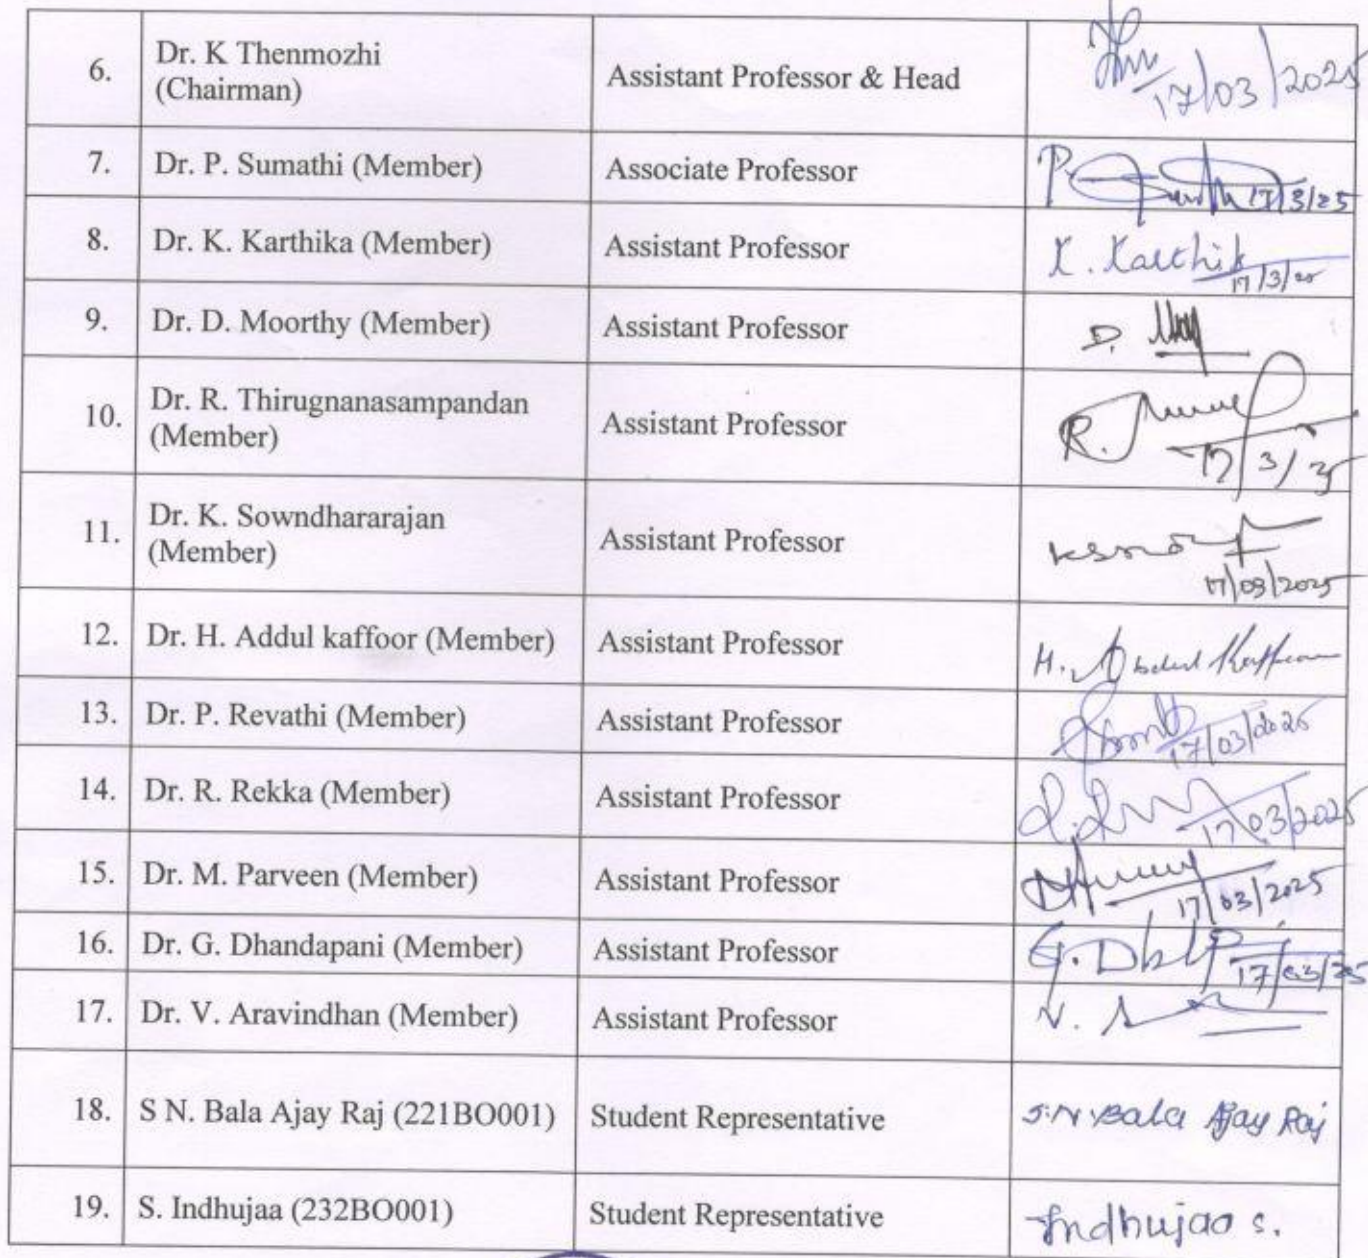 6. Dr. K Thenmozhi Assistant Professor & Head 17/03/2025
(Chairman)
7. Dr. P. Sumathi (Member) Associate Professor P. 17/3/25
8. Dr. K. Karthika (Member) Assistant Professor K. Karthik 17/3/25
9. Dr. D. Moorthy (Member) Assistant Professor D.
10. Dr. R. Thirugnanasampandan Assistant Professor R. 17/3/25
(Member)
11. Dr. K. Sowndhararajan Assistant Professor
(Member) 17/03/2025
12. Dr. H. Addul kaffoor (Member) Assistant Professor H. Abdul Kaffoor
13. Dr. P. Revathi (Member) Assistant Professor 17/03/2025
14. Dr. R. Rekka (Member) Assistant Professor 17/03/2025
15. Dr. M. Parveen (Member) Assistant Professor 17/03/2025
16. Dr. G. Dhandapani (Member) Assistant Professor G. 17/03/25
17. Dr. V. Aravindhan (Member) Assistant Professor V.
18. S N. Bala Ajay Raj (221BO001) Student Representative S.N Bala Ajay Raj
19. S. Indhujaa (232BO001) Student Representative Indhujaa S.